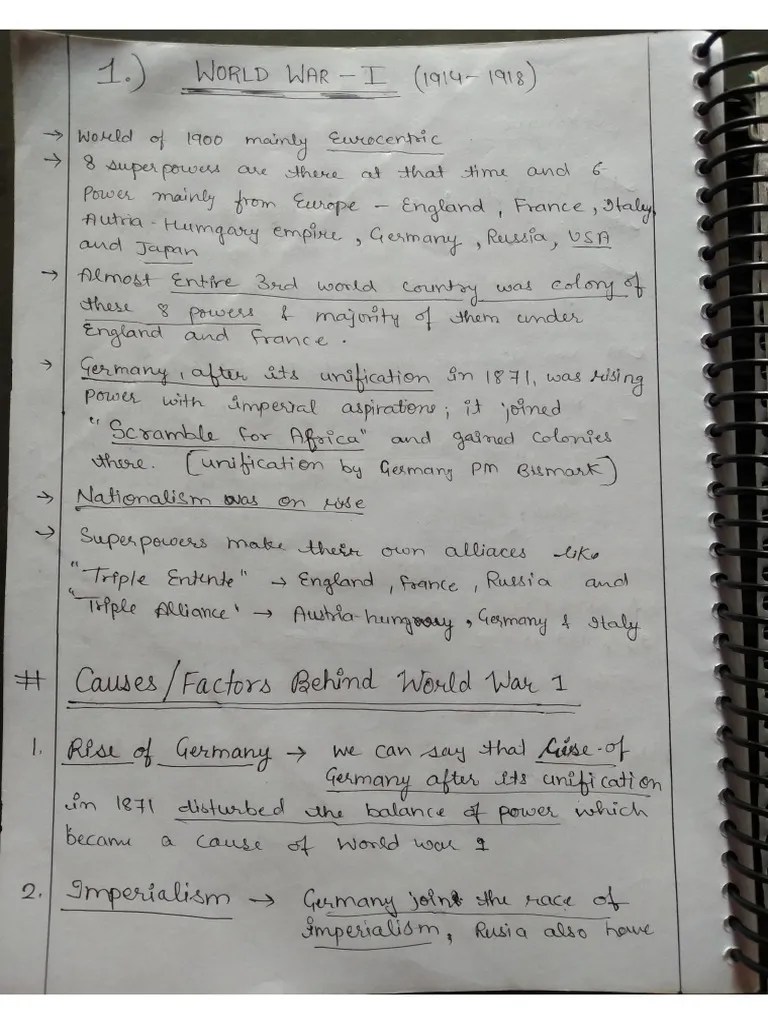 1.) WORLD WAR - I (1914 - 1918)
→ World of 1900 mainly Eurocentric
→ 8 superpowers are there at that time and 6
Power mainly from Europe - England, France, Italy,
Autria-Humgary empire, Germany, Russia, USA
and Japan
→ Almost entire 3rd world country was colony of
these 8 powers & majority of them under
England and France.
→ Germany, after its unification in 1871, was rising
power with imperial aspirations; it joined
"Scramble for Africa" and gained colonies
there. (unification by Germany PM Bismark)
→ Nationalism was on rise
→ Superpowers make their own alliaces like
"Triple Entente" → England, France, Russia and
"Triple Alliance" → Austria-hungary, Germany & Italy
# Causes/Factors Behind World War 1
1. Rise of Germany → we can say that rise of
Germany after its unification
in 1871 disturbed the balance of power which
became a cause of World war 1
2. Imperialism → Germany joint the race of
imperialism, Rusia also have